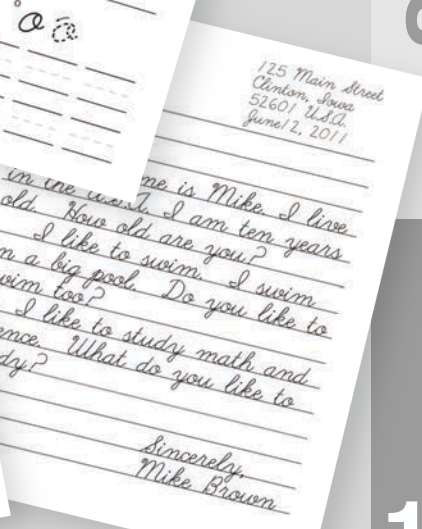 a a
125 Main Street
Clinton, Iowa
52601 U.S.A.
June 12, 2011
me is Mike. I live
in the U.S.A. I am ten years
old. How old are you?
I like to swim. I swim
a big pool. Do you like to
too?
I like to study math and
What do you like to
Sincerely,
Mike Brown
1